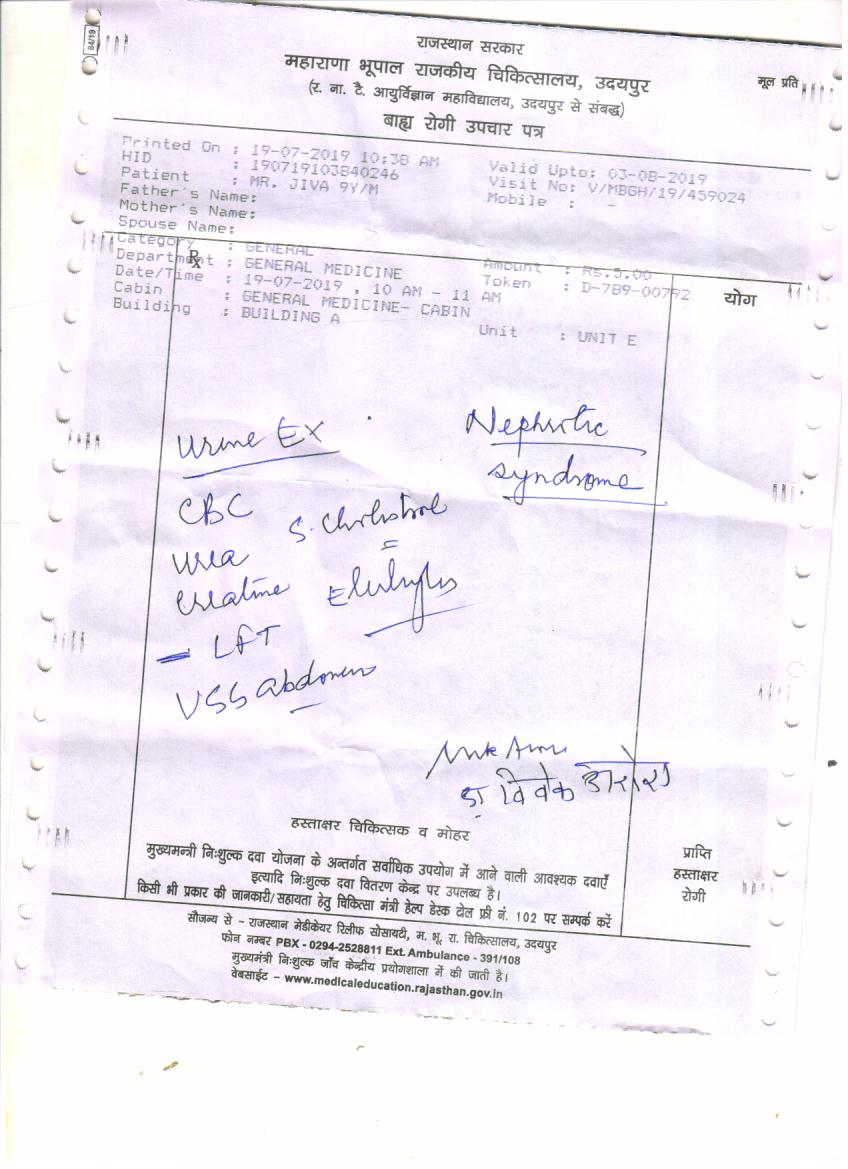 84/19
राजस्थान सरकार
महाराणा भूपाल राजकीय चिकित्सालय, उदयपुर
(र. ना. टै. आयुर्विज्ञान महाविद्यालय, उदयपुर से संबद्ध)
मूल प्रति
बाह्य रोगी उपचार पत्र
Printed On : 19-07-2019 10:38 AM
HID : 190719103840246 Valid Upto: 03-08-2019
Patient : MR. JIVA 9Y/M Visit No: V/MBGH/19/459024
Father's Name: Mobile : -
Mother's Name:
Spouse Name:
Category : GENERAL Amount : Rs.5.00
Rx
Department : GENERAL MEDICINE Token : D-789-00792
Date/Time : 19-07-2019 , 10 AM - 11 AM
Cabin : GENERAL MEDICINE- CABIN
Building : BUILDING A Unit : UNIT E
योग
Urine Ex Nephrotic
syndrome
CBC S. Cholestrol
Urea
Creatine
- LFT
USG abdomen
डा विवेक अरोरा
हस्ताक्षर चिकित्सक व मोहर
मुख्यमन्त्री निःशुल्क दवा योजना के अन्तर्गत सर्वाधिक उपयोग में आने वाली आवश्यक दवाएँ
इत्यादि निःशुल्क दवा वितरण केन्द्र पर उपलब्ध है।
किसी भी प्रकार की जानकारी/सहायता हेतु चिकित्सा मंत्री हेल्प डेस्क टोल फ्री नं. 102 पर सम्पर्क करें
प्राप्ति
हस्ताक्षर
रोगी
सौजन्य से – राजस्थान मेडीकेयर रिलीफ सोसायटी, म. भू. रा. चिकित्सालय, उदयपुर
फोन नम्बर PBX - 0294-2528811 Ext. Ambulance - 391/108
मुख्यमंत्री निःशुल्क जाँच केन्द्रीय प्रयोगशाला में की जाती है।
वेबसाईट – www.medicaleducation.rajasthan.gov.in